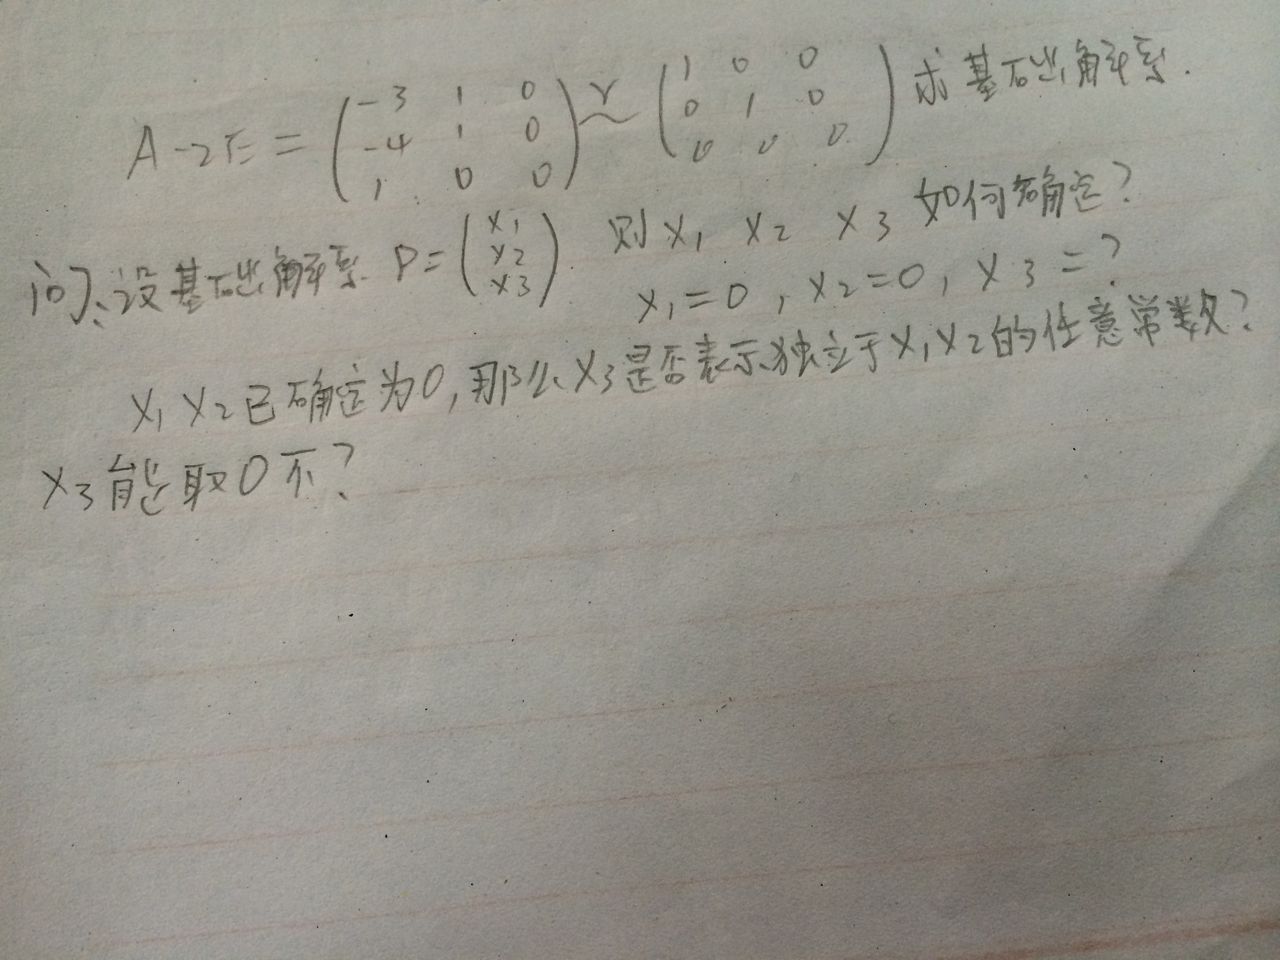 A-2E = (-3 1 0 / -4 1 0 / 1 0 0) ~r (1 0 0 / 0 1 0 / 0 0 0) 求基础解系.
问:设基础解系 P=(x1 / x2 / x3). 则 x1 x2 x3 如何确定?
x1=0, x2=0, x3=?
x1 x2已确定为0,那么x3是否表示独立于x1x2的任意常数?
x3能取0不?